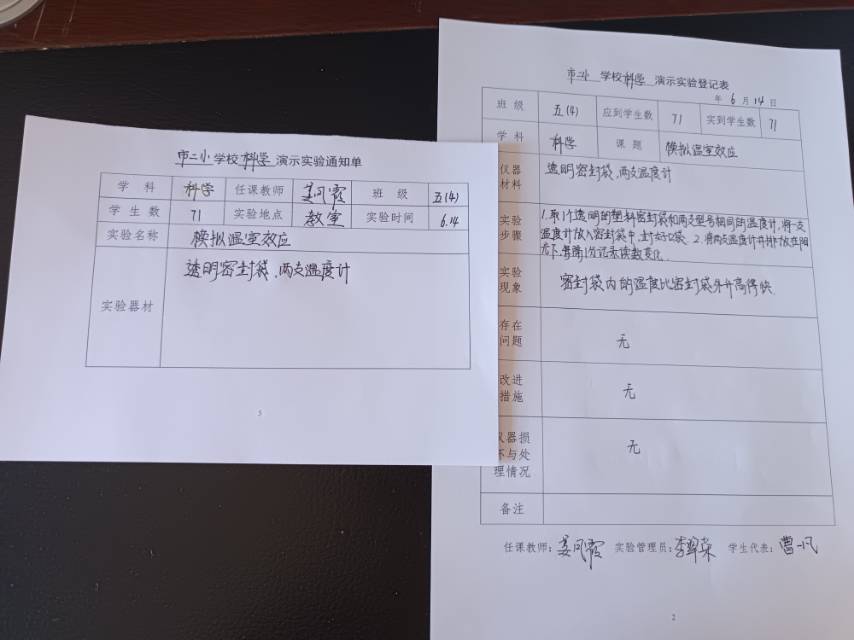 市二小学校科学演示实验通知单
学科 科学 任课教师 姜凤霞 班级 五(4)
学生数 71 实验地点 教室 实验时间 6.14
实验名称 模拟温室效应
实验器材 透明密封袋、两支温度计
5
市二小学校科学演示实验登记表
年 6 月 14 日
班级 五(4) 应到学生数 71 实到学生数 71
学科 科学 课题 模拟温室效应
仪器材料 透明密封袋、两支温度计
实验步骤 1.取1个透明的塑料密封袋和两支型号相同的温度计,将一支
温度计放入密封袋中,封好口袋. 2.将两支温度计并排放在阳
光下,每隔1分记录读数变化.
实验现象 密封袋内的温度比密封袋外升高得快.
存在问题 无
改进措施 无
仪器损坏与处理情况 无
备注
任课教师:姜凤霞 实验管理员:李翠荣 学生代表:曹一凡
2